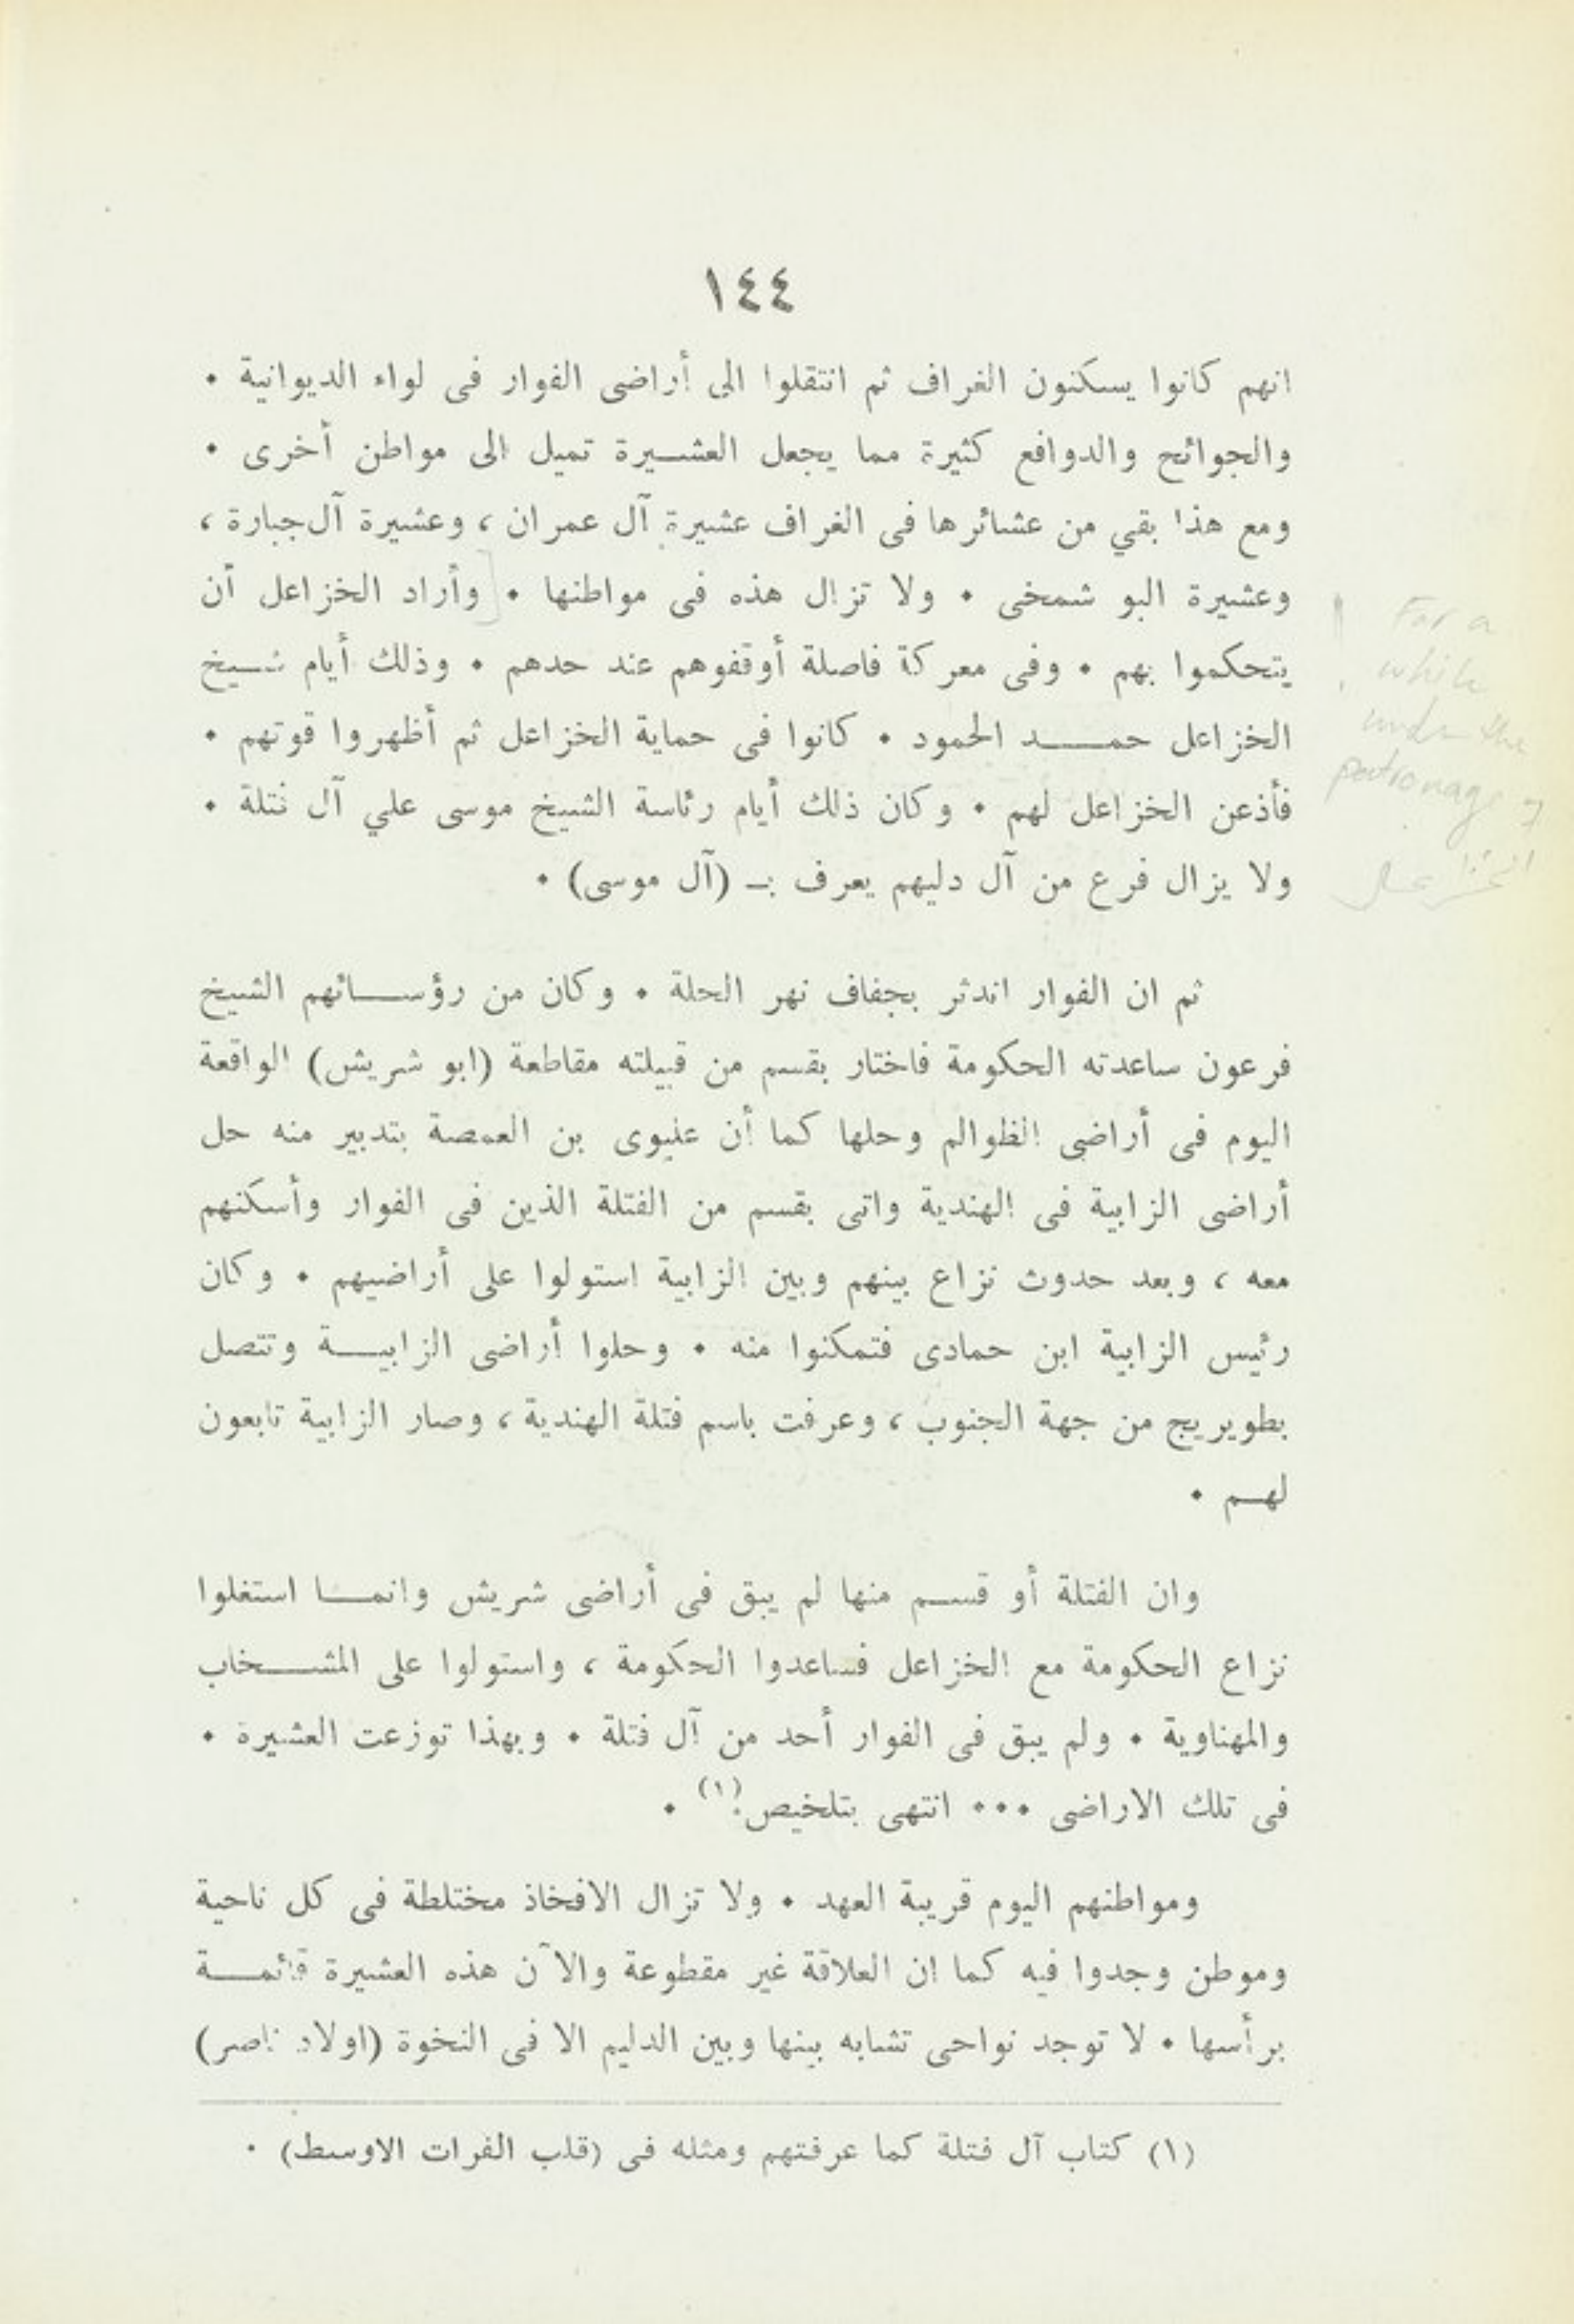 ١٤٤
انهم كانوا يسكنون الغراف ثم انتقلوا الى أراضى الفوار فى لواء الديوانية •
والجوائح والدوافع كثيرة مما يجعل العشـــيرة تميل الى مواطن أخرى •
ومع هذا بقي من عشائرها فى الغراف عشيرة آل عمران ، وعشيرة آل جبارة ،
وعشيرة البو شمخى • ولا تزال هذه فى مواطنها • [وأراد الخزاعل أن
يتحكموا بهم • وفى معركة فاصلة أوقفوهم عند حدهم • وذلك أيام شـــيخ
الخزاعل حمـــــد الحمود • كانوا فى حماية الخزاعل ثم أظهروا قوتهم •
فأذعن الخزاعل لهم • وكان ذلك أيام رئاسة الشيخ موسى علي آل فتلة •
ولا يزال فرع من آل دليهم يعرف بـ (آل موسى) •
For a
while
under the
patronage of
الخزاعل
ثم ان الفوار اندثر بجفاف نهر الحلة • وكان من رؤســـائهم الشيخ
فرعون ساعدته الحكومة فاختار بقسم من قبيلته مقاطعة (ابو شريش) الواقعة
اليوم فى أراضى الظوالم وحلها كما أن عليوى بن العمصة بتدبير منه حل
أراضى الزابية فى الهندية واتى بقسم من الفتلة الذين فى الفوار وأسكنهم
معه ، وبعد حدوث نزاع بينهم وبين الزابية استولوا على أراضيهم • وكان
رئيس الزابية ابن حمادى فتمكنوا منه • وحلوا أراضى الزابيـــة وتتصل
بطويريج من جهة الجنوب ، وعرفت باسم فتلة الهندية ، وصار الزابية تابعون
لهـــم •
وان الفتلة أو قســـم منها لم يبق فى أراضى شريش وانمـــا استغلوا
نزاع الحكومة مع الخزاعل فساعدوا الحكومة ، واستولوا على المشـــخاب
والمهناوية • ولم يبق فى الفوار أحد من آل فتلة • وبهذا توزعت العشيرة •
فى تلك الاراضى ••• انتهى بتلخيص(١) •
ومواطنهم اليوم قريبة العهد • ولا تزال الافخاذ مختلطة فى كل ناحية
وموطن وجدوا فيه كما ان العلاقة غير مقطوعة والآن هذه العشيرة قائمـــة
برأسها • لا توجد نواحى تشابه بينها وبين الدليم الا فى النخوة (اولاد ناصر)
(١) كتاب آل فتلة كما عرفتهم ومثله فى (قلب الفرات الاوسط) •